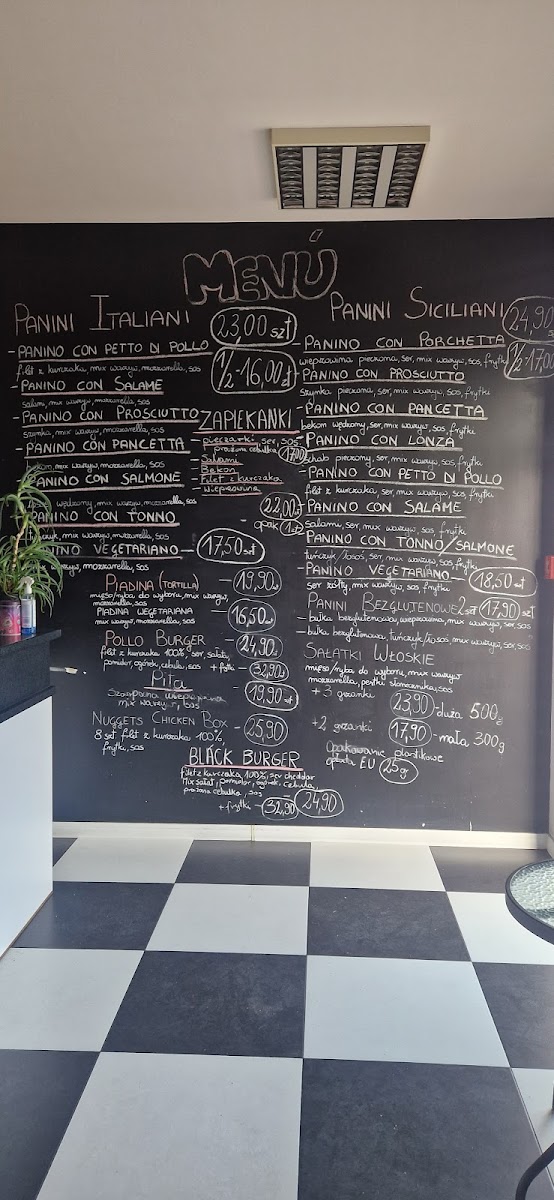 MENÚ
PANINI ITALIANI
23,00 szt
1/2-16,00 zł
- PANINO CON PETTO DI POLLO
filet z kurczaka, mix warzyw, mozzarella, sos
- PANINO CON SALAME
salami, mix warzyw, mozzarella, sos
- PANINO CON PROSCIUTTO
szynka, mix warzyw, mozzarella, sos
- PANINO CON PANCETTA
mix warzyw, mozzarella, sos
PANINO CON SALMONE
wędzony, mix warzyw, mozzarella, sos
PANINO CON TONNO
mix warzyw, mozzarella, sos
VEGETARIANO - 17,50 szt
warzyw, mozzarella, sos
PIADINA (TORTILLA) - 19,90
mięso/ryba do wyboru, mix warzyw,
mozzarella, sos
PIADINA WEGETARIANA - 16,50
mix warzyw, mozzarella, sos
POLLO BURGER - 24,90
filet z kurczaka 100%, ser, sałata,
pomidor, ogórek, cebula, sos + frytki - 32,90
Pita - 19,90 szt
mix warzyw, sos
NUGGETS CHICKEN BOX - 25,90
8 szt filet z kurczaka 100%
frytki, sos
ZAPIEKANKI
- pieczarki, ser, sos
prażona cebulka 17,00
- Salami
- Bekon
- Filet z kurczaka
- Wieprzowina
22,00
opak 1zł
BLACK BURGER
filet z kurczaka 100%, ser cheddar
Mix sałat, pomidor, ogórek, cebula,
prażona cebulka, sos - 24,90
+ frytki - 32,90
PANINI SICILIANI
24,90
1/2-17,00
- PANINO CON PORCHETTA
wieprzowina pieczona, ser, mix warzyw, sos, frytki
- PANINO CON PROSCIUTTO
szynka pieczona, ser, mix warzyw, sos, frytki
- PANINO CON PANCETTA
bekon wędzony, ser, mix warzyw, sos, frytki
- PANINO CON LONZA
schab pieczony, ser, mix warzyw, sos, frytki
- PANINO CON PETTO DI POLLO
filet z kurczaka, ser, mix warzyw, sos, frytki
- PANINO CON SALAME
Salami, ser, mix warzyw, sos, frytki
- PANINO CON TONNO/SALMONE
tuńczyk/łosoś, ser, mix warzyw, sos, frytki
- PANINO VEGETARIANO - 18,50 szt
ser żółty, mix warzyw, sos, frytki
PANINI BEZGLUTENOWE 2szt 17,90 szt
- bułka bezglutenowa, wieprzowina, mix warzyw, ser, sos
- bułka bezglutenowa, tuńczyk/łosoś, mix warzyw, ser, sos
SAŁATKI WŁOSKIE
mięso/ryba do wyboru, mix warzyw
mozzarella, pestki słonecznika, sos
+ 3 grzanki 23,90 - duża 500g
+2 grzanki 17,90 - mała 300g
Opakowanie plastikowe
opłata EU 25g